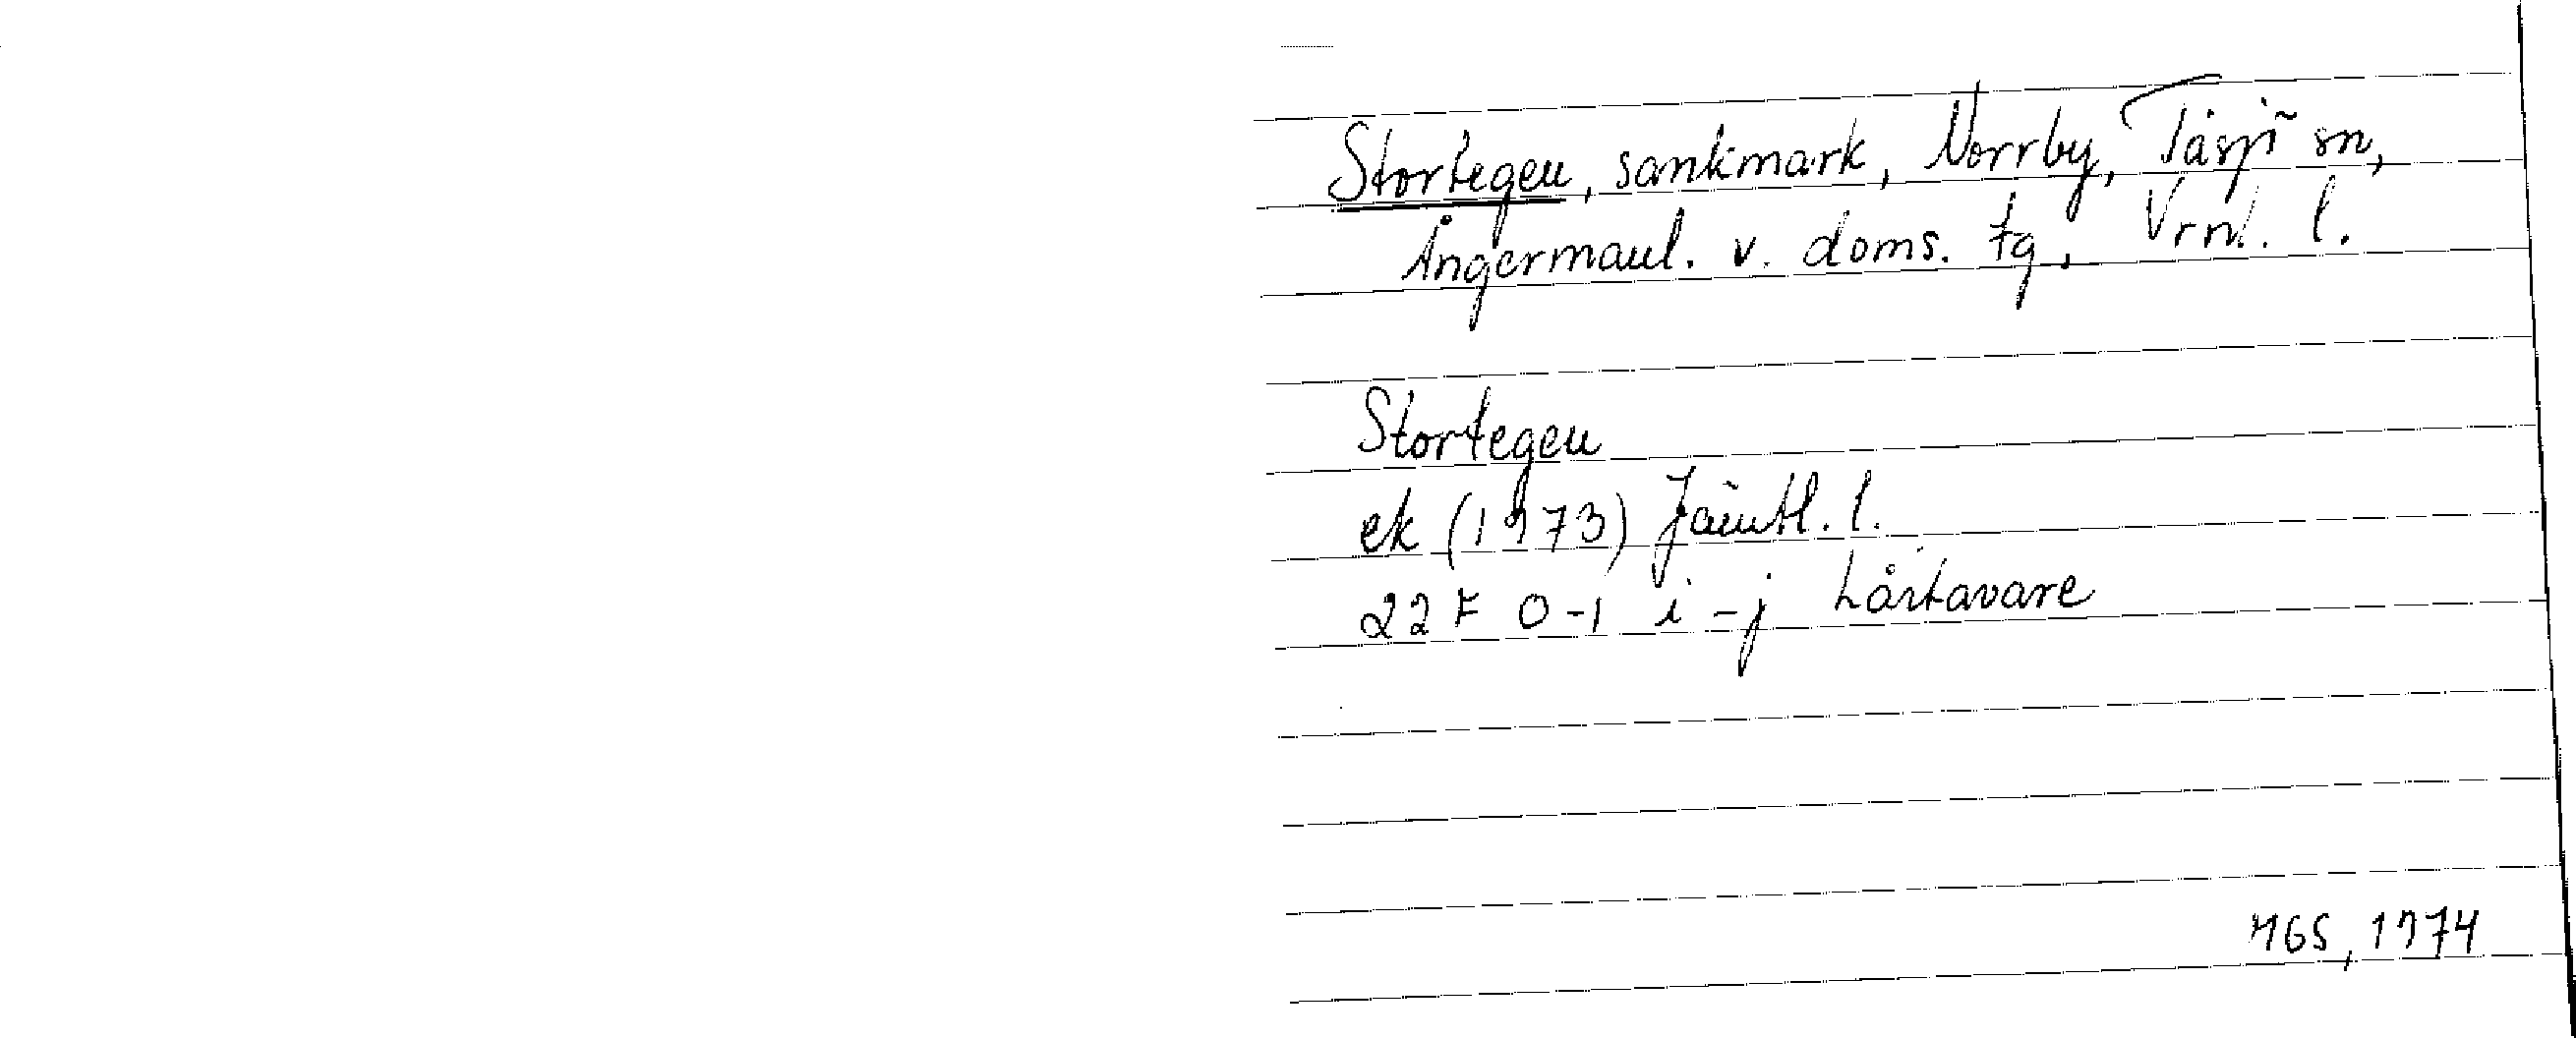 Stortegen, sankmark, Norrby, Tåsjö sn,
Ångermanl. v. doms. tg, Vrnl. l.
Stortegen
ek (1973) Jämtl. l.
22 F 0-1 i-j Låstavare
MGS, 1974